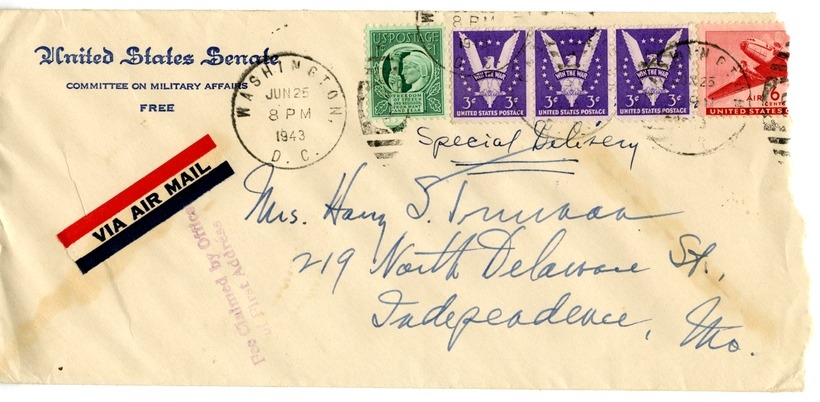 United States Senate
COMMITTEE ON MILITARY AFFAIRS
FREE
WASHINGTON, D. C.
JUN 25
8 PM
1943
U.S. POSTAGE
8 PM
WIN THE WAR
3¢ 3¢
UNITED STATES POSTAGE
WIN THE WAR
3¢ 3¢
UNITED STATES POSTAGE
WIN THE WAR
3¢ 3¢
UNITED STATES POSTAGE
AIR 6
CENTS
UNITED STATES
Special Delivery
VIA AIR MAIL
Fee Claimed by Office
of First Address
Mrs. Harry S. Truman
219 North Delaware St.,
Independence, Mo.